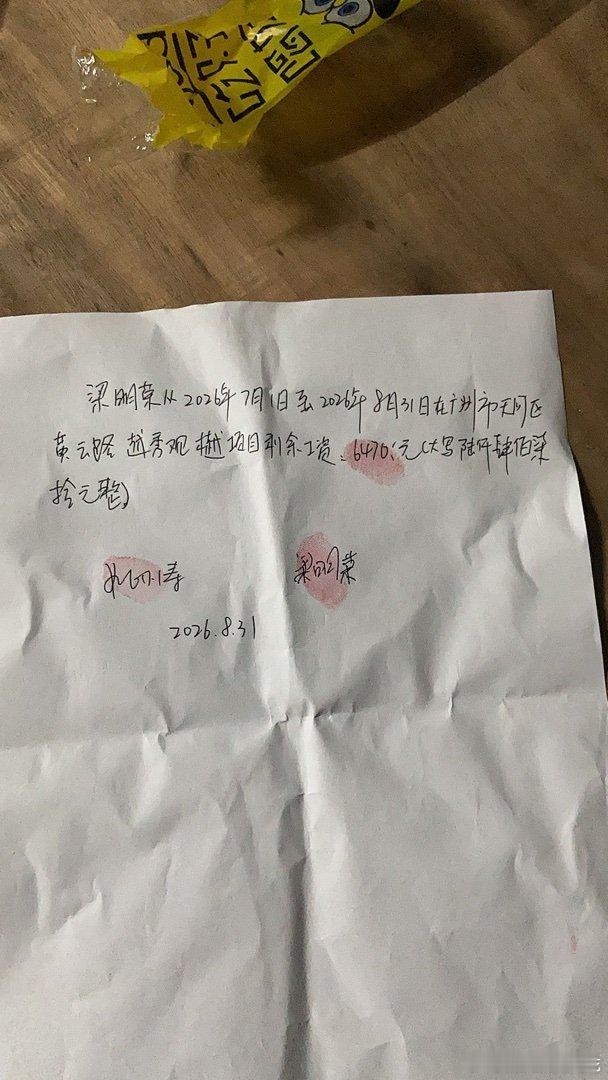 梁明荣从2026年7月1日至2026年8月31日在广州市天河区
黄云路 越秀观樾项目剩余工资:6470:元(大写陆仟肆佰柒
拾元整)
梁明荣
2026.8.31